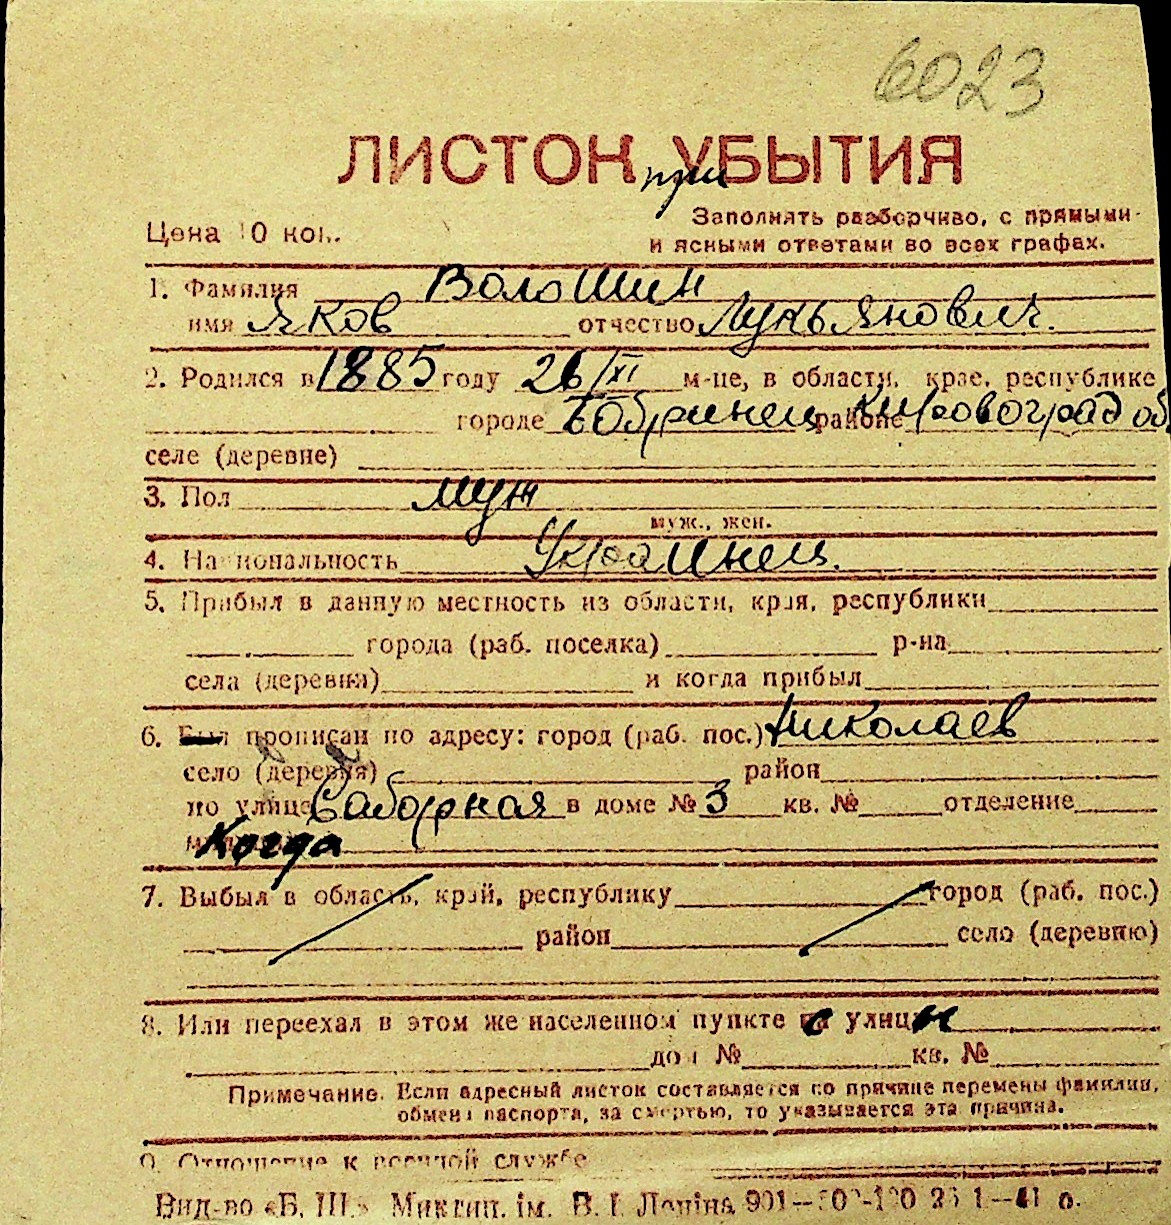 6023
ЛИСТОК при УБЫТИЯ
Цена 10 коп.
Заполнять разборчиво, с прямыми
и ясными ответами во всех графах.
1. Фамилия Волошин
имя Яков отчество Лукьянович.
2. Родился в 1885 году 26/XI м-це, в области, крае, республике
городе Бобринец районе Кировоград об.
селе (деревне)
3. Пол муж
муж., жен.
4. Национальность Украинец.
5. Прибыл в данную местность из области, края, республики
города (раб. поселка) р-на
села (деревни) и когда прибыл
6. Был прописан по адресу: город (раб. пос.) Николаев
село (деревня) район
по улице Саборная в доме № 3 кв. № отделение
Когда
7. Выбыл в область, край, республику город (раб. пос.)
район село (деревню)
8. Или переехал в этом же населенном пункте с улицы
дом № кв. №
Примечание. Если адресный листок составляется по причине перемены фамилии,
обмена паспорта, за смертью, то указывается эта причина.
9. Отношение к военной службе
Вид-во «Б. Ш.» Миктип. ім. В. І. Леніна 901—